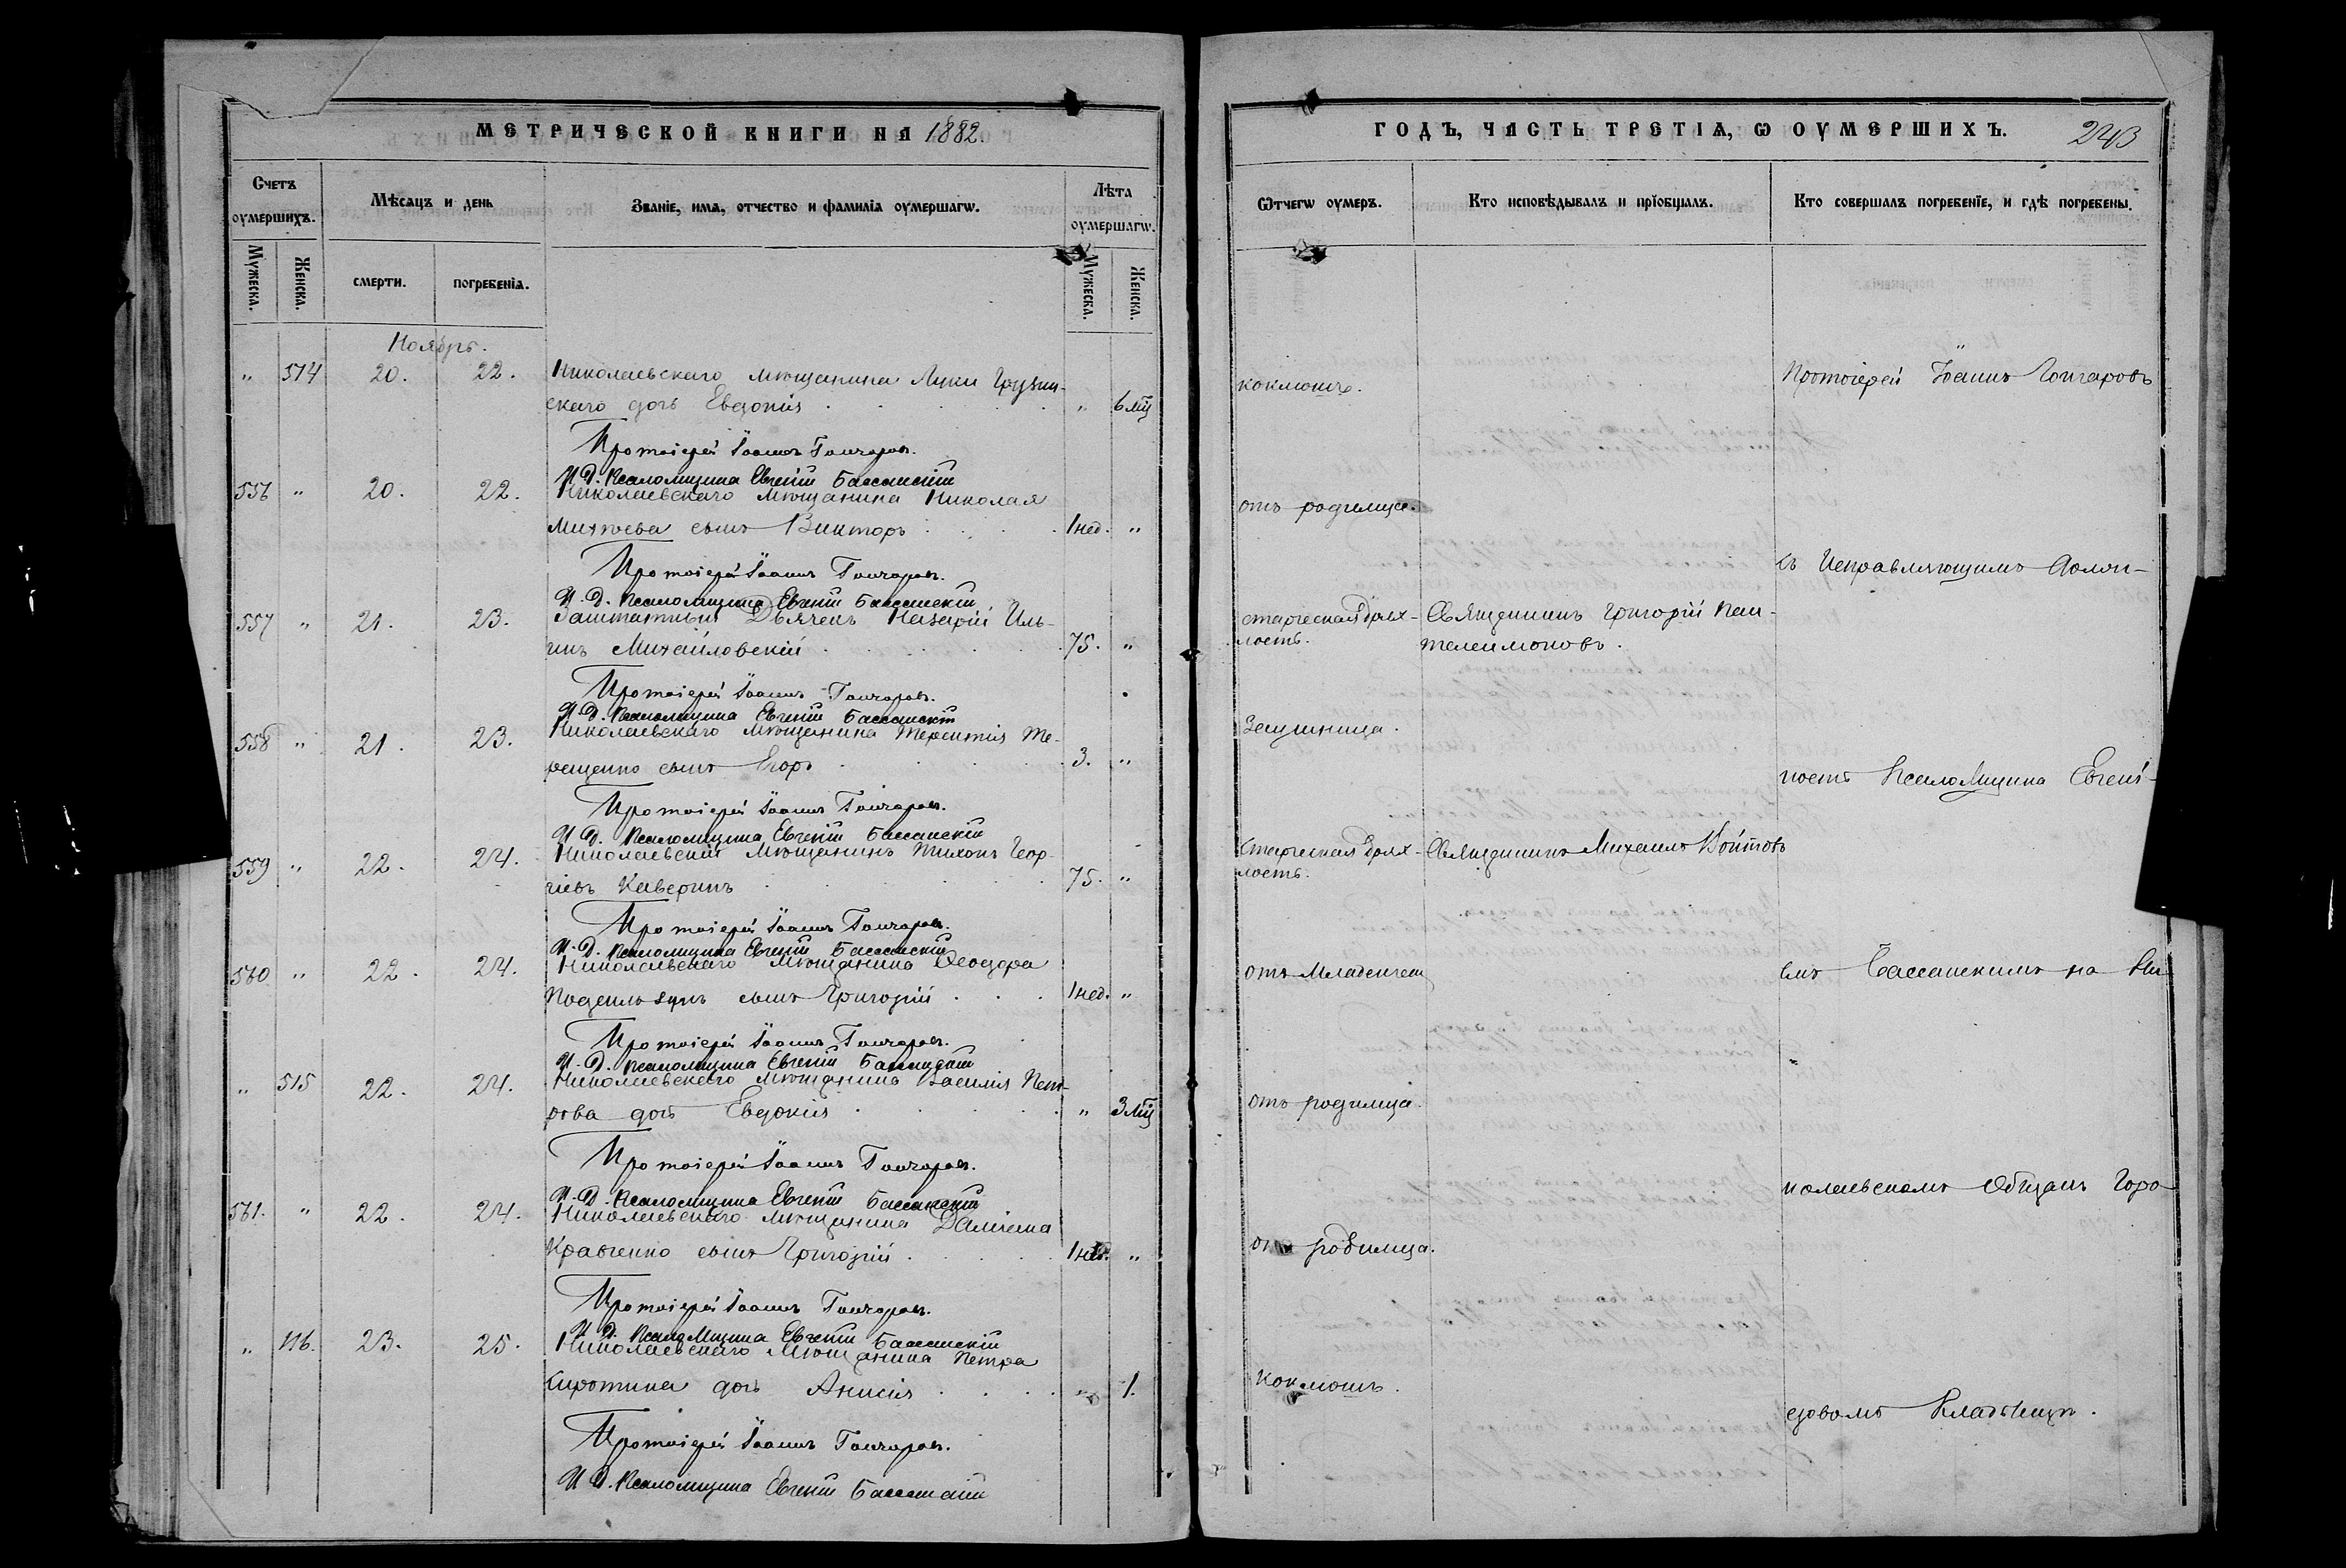 МЕТРИЧЕСКОЙ КНИГИ НА 1882.
Счетъ оумершихъ.
Мѣсяцъ и день
Званіе, имя, отчество и фамилія оумершагѡ.
Лѣта оумершагѡ.
Мужеска.
Женска.
смерти.
погребенія.
Мужеска.
Женска.
Ноябрь.
„ 514 20. 22. Николаевскаго мѣщанина Луки Грузин-
скаго дочь Евдокія „ 6 мц
Протоіерей Іоаннъ Гончаровъ.
И. Д. Псаломщика Евгеній Бассанскій
556 „ 20. 22. Николаевскаго мѣщанина Николая
Михѣева сынъ Викторъ 1 нед. „
Протоіерей Іоаннъ Гончаровъ.
И. Д. Псаломщика Евгеній Бассанскій
557 „ 21. 23. Заштатный Дьячекъ Назарій Иль-
инъ Михайловскій 75. „
Протоіерей Іоаннъ Гончаровъ.
И. Д. Псаломщика Евгеній Бассанскій
558 „ 21. 23. Николаевскаго мѣщанина Терентія Те-
рещенко сынъ Егоръ 3. „
Протоіерей Іоаннъ Гончаровъ.
И. Д. Псаломщика Евгеній Бассанскій
559 „ 22. 24. Николаевскій мѣщанинъ Тихонъ Геор-
гіевъ Каверинъ 75. „
Протоіерей Іоаннъ Гончаровъ.
И. Д. Псаломщика Евгеній Бассанскій
560 „ 22. 24. Николаевскаго мѣщанина Ѳеодора
сынъ Григорій 1 нед. „
Протоіерей Іоаннъ Гончаровъ.
И. Д. Псаломщика Евгеній Бассанскій
„ 515 22. 24. Николаевскаго мѣщанина Василія Пет-
рова дочь Евдокія „ 3 мц
Протоіерей Іоаннъ Гончаровъ.
И. Д. Псаломщика Евгеній Бассанскій
561. „ 22. 24. Николаевскаго мѣщанина Даміана
Кравченко сынъ Григорій 1 нед. „
Протоіерей Іоаннъ Гончаровъ.
И. Д. Псаломщика Евгеній Бассанскій
„ 516. 23. 25. Николаевскаго мѣщанина Петра
Сиротина дочь Анисія „ 1.
Протоіерей Іоаннъ Гончаровъ.
И. Д. Псаломщика Евгеній Бассанскій
ГОДЪ, ЧАСТЬ ТРЕТІЯ, Ѡ ОУМЕРШИХЪ. 243
Ѿтчегѡ оумеръ.
Кто исповѣдывалъ и пріобщалъ.
Кто совершалъ погребеніе, и гдѣ погребены.
коклюша.
Протоіерей Іоаннъ Гончаровъ
отъ родимца.
съ Исправляющимъ долж-
старческая дрях-
лость.
Священникъ Григорій Пан-
телеимоновъ.
Заушница.
ность Псаломщика Евгені-
старческая дрях-
лость.
Священникъ Михаилъ Войтовъ
отъ младенчест
емъ Бассанскимъ на Ни
отъ родимца.
колаевскомъ Общемъ Горо
отъ родимца.
Коклюшъ.
довомъ Кладбищѣ.